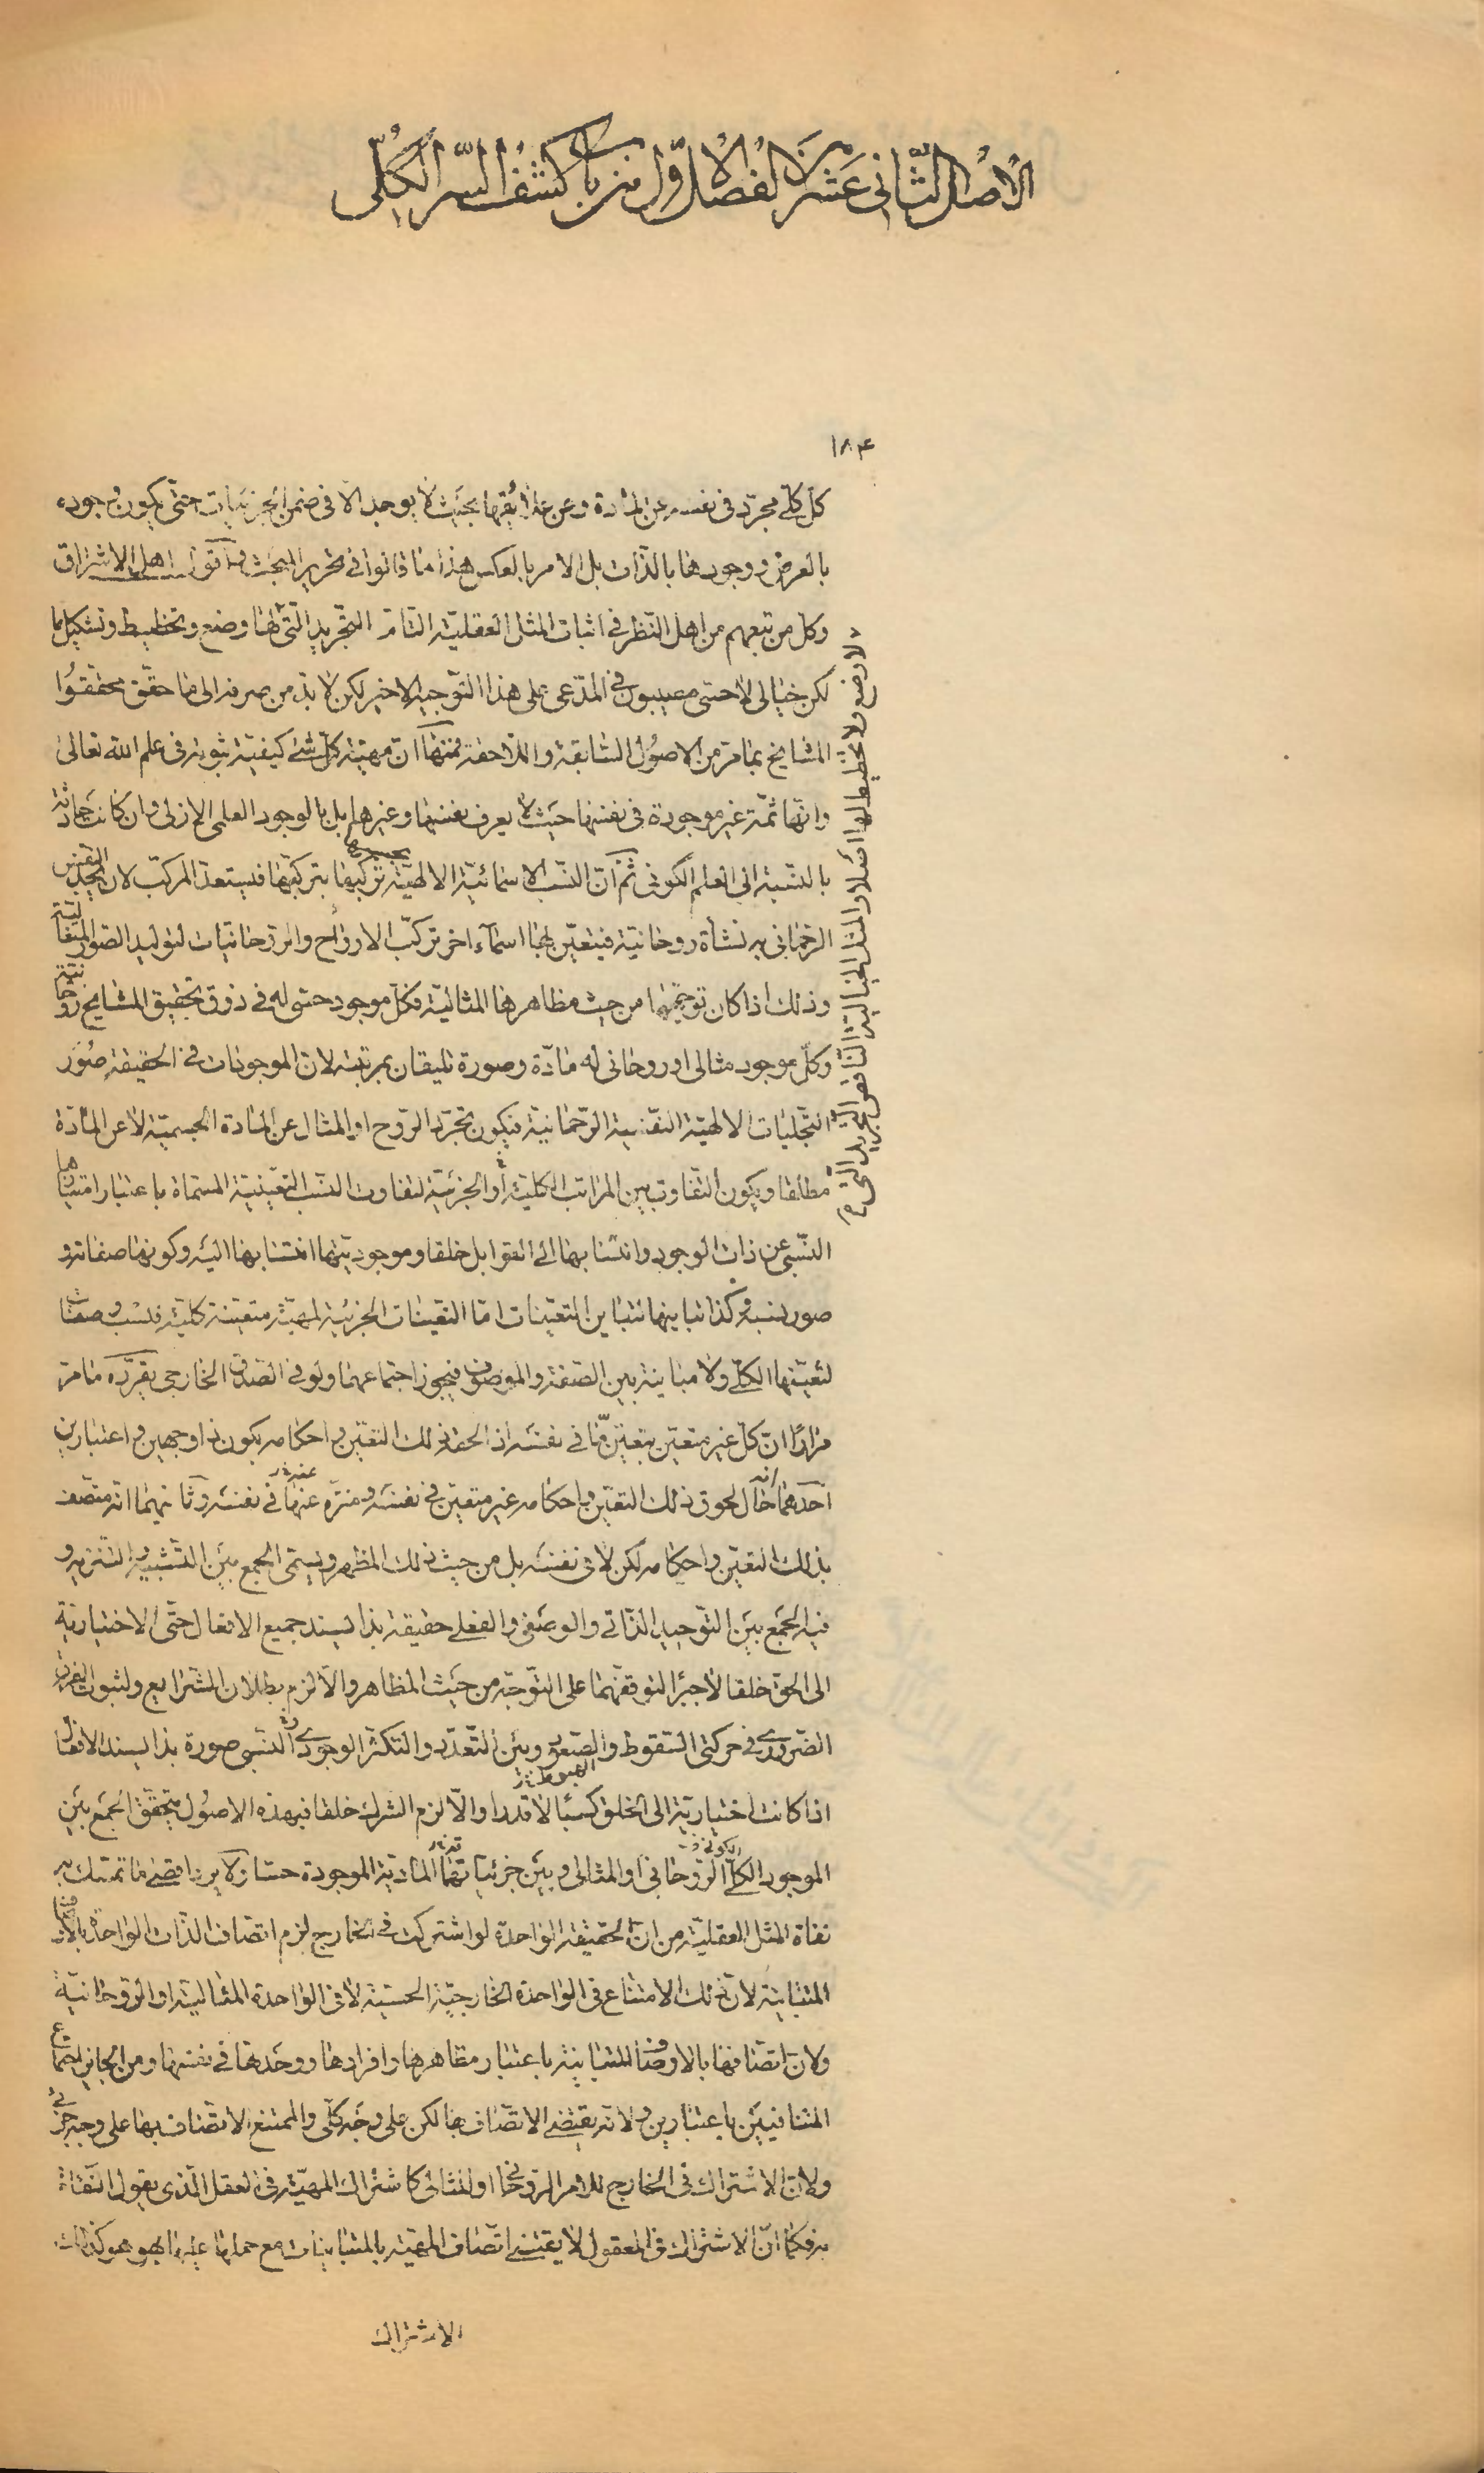 الاصل الثاني عشر من الفصل الاول من باب كشف السر الكلي
١٨٤
كل كلى مجرّد فى نفسه عن المادة وعن علائقها بحيث لا يوجد الا فى ضمن الجزئيات حتى يكون وجوده
بالعرض ووجودها بالذات بل الامر بالعكس هذا ما قالوا فى تحرير المبحث فاقول اهل الاشراق
وكل من تبعهم من اهل النظر فى اثبات المثل العقلية التامة التجريد التى لها وضع وتخطيط وتشكيل ما
لكن خيالى لا حسى مصيبون فى المدّعى على هذا التوجيه الاخير لكن لا بد من صرفه الى ما حقق محققوا
المشايخ بما مرّ من الاصول السابقة واللاحقة فمنها ان مهية كل شئ كيفية ثبوته فى علم الله تعالى
وانها ثمّة غير موجودة فى نفسها حيث لا يعرف نفسها وغيرها بل بالوجود العلمى الازلى وان كانت حادثة
بالنسبة الى العلم الكونى ثم ان النسب الاسمائية الالهية تركيبها بتركيبها فيستعد المركب لان يتجلى النفس
الرحمانى به نشأة روحانية فيتعين بها اسماء اخر تركب الارواح والروحانيات لتوليد الصور المثالية
وذلك اذا كان توجهها من حيث مظاهرها المثالية فكل موجود حسى له فى ذوق تحقيق المشايخ روحانية
وكل موجود مثالى او روحانى له مادّة وصورة تليقان بمرتبته لان الموجودات فى الحقيقة صور
التجليات الالهية النفسية الرحمانية فيكون تجرد الروح او المثال عن المادة الجسمية لا عن المادة
مطلقا ويكون التفاوت بين المراتب الكلية او الجزئية لتفاوت النسب التعينية المسماة باعتبار امتيازها
النسبى عن ذات الوجود وانتسابها الى القوابل خلقا وموجوديتها انتسابها اليه وكونها صفاته و
صور نسبه وكذا تباينها تباين التعينات اما التعينات الجزئية لمهية متعينة كلية فنسب وصفات
لتعينها الكلى ولا مباينة بين الصفة والموصوف فيجوز اجتماعهما ولو فى الصدق الخارجى يقرره ما مر
مرارًا ان كل غير متعين بتعين ما فى نفسه اذا لحقه ذلك التعين واحكامه يكون ذا وجهين واعتبارين
احدهما انه حال لحوق ذلك التعين واحكامه غير متعين فى نفسه ومنزه عنها فى نفسه وثانيهما انه متصف
بذلك التعين واحكامه لكن لا فى نفسه بل من حيث ذلك المظهر ويسمى الجمع بين التشبيه والتنزيه و
فيه الجمع بين التوحيد الذاتى والوصفى والفعلى حقيقة بذا يسند جميع الافعال حتى الاختيارية
الى الحق خلقا لا جبرا لتوقفها على التوجه من حيث المظاهر والا لزم بطلان الشرايع ولثبوت الفرق
الضرورى فى حركتى السقوط والصعود وبين التعدد والتكثر الوجودى النسبى صورة بذا يسند الافعال
الهبوط
اذا كانت اختيارية الى الخلق كسبا لا قدرا والا لزم الشرك خلقا فبهذه الاصول يتحقق الجمع بين
الموجود الكلى الروحانى او المثالى وبين جزئياتها المادية الموجودة حسا ولا يرد ما تمسك به
نفاة المثل العقلية من ان الحقيقة الواحدة لو اشتركت فى الخارج لزم اتصاف الذات الواحدة بالاوصاف
المتباينة لان ذلك الامتناع فى الواحدة الخارجية الحسية لا فى الواحدة المثالية او الروحانية
ولان اتصافها بالاوصاف المتباينة باعتبار مظاهرها وافرادها ووحدتها فى نفسها ومن الجايز اجتماع
المتنافيين باعتبارين ولانه يقتضى الاتصاف بها لكن على وجه كلى والممتنع الاتصاف بها على وجه جزئى
ولان الاشتراك فى الخارج للامر الروحانى او المثالى كاشتراك المهية فى العقل الذى يقول النفاة
به فكما ان الاشتراك فى المعقول لا يقتضى اتصاف المهية بالمتباينات مع حملها عليها بهو هو كذلك
الاشتراك
لا وضع ولا تخطيط لها اصلا والمثل الخيالية الناقصة التجريد التى